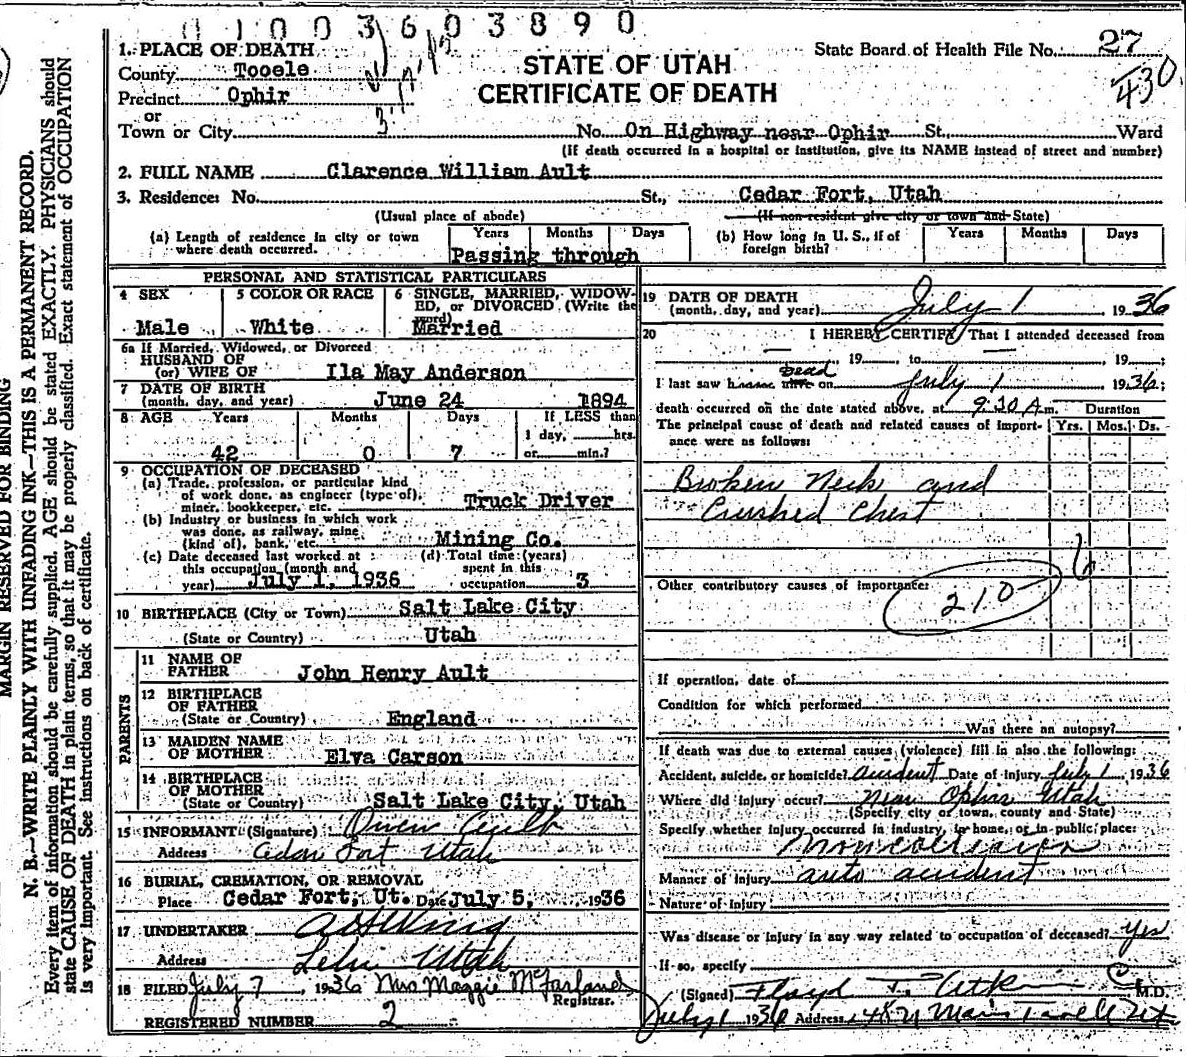 0 1 0 0 3 6 0 3 8 9 0
1. PLACE OF DEATH
County Tooele
Precinct Ophir
or
Town or City
STATE OF UTAH
CERTIFICATE OF DEATH
State Board of Health File No. 27
430
No. On Highway near Ophir St., Ward
(If death occurred in a hospital or institution, give its NAME instead of street and number)
2. FULL NAME Clarence William Ault
3. Residence: No. St., Cedar Fort, Utah
(Usual place of abode) (If non-resident give city or town and State)
(a) Length of residence in city or town where death occurred. Years Months Days
Passing through
(b) How long in U. S., if of foreign birth? Years Months Days
PERSONAL AND STATISTICAL PARTICULARS
4 SEX
Male
5 COLOR OR RACE
White
6 SINGLE, MARRIED, WIDOW-
ED, or DIVORCED (Write the
word)
Married
6a If Married, Widowed, or Divorced
HUSBAND OF
(or) WIFE OF Ila May Anderson
7 DATE OF BIRTH
(month, day, and year) June 24 1894
8 AGE Years Months Days If LESS than
1 day, hrs.
42 0 7 or min.?
9 OCCUPATION OF DECEASED
(a) Trade, profession, or particular kind
of work done, as engineer (type of),
miner, bookkeeper, etc. Truck Driver
(b) Industry or business in which work
was done, as railway, mine
(kind of), bank, etc. Mining Co.
(c) Date deceased last worked at
this occupation (month and
year) July 1, 1936
(d) Total time (years)
spent in this
occupation 3
10 BIRTHPLACE (City or Town) Salt Lake City
(State or Country) Utah
PARENTS
11 NAME OF
FATHER John Henry Ault
12 BIRTHPLACE
OF FATHER
(State or Country) England
13 MAIDEN NAME
OF MOTHER Elva Carson
14 BIRTHPLACE
OF MOTHER
(State or Country) Salt Lake City, Utah
15 INFORMANT (Signature) Owen Ault
Address Cedar Fort Utah
16 BURIAL, CREMATION, OR REMOVAL
Place Cedar Fort, Ut. Date July 5, 1936
17 UNDERTAKER
Address Lehi Utah
18 FILED July 7, 1936 Mrs Maggie McFarland
Registrar.
REGISTERED NUMBER 2
19 DATE OF DEATH
(month, day, and year) July 1 1936
20 I HEREBY CERTIFY That I attended deceased from
, 19 to , 19 ;
dead
I last saw h alive on July 1 1936;
death occurred on the date stated above, at 9:30 A m. Duration
The principal cause of death and related causes of import-
ance were as follows: Yrs. Mos. Ds.
Broken Neck and
Crushed Chest
Other contributory causes of importance:
210
If operation, date of
Condition for which performed
Was there an autopsy?
If death was due to external causes (violence) fill in also the following:
Accident, suicide, or homicide? accident Date of injury July 1, 1936
Where did injury occur? Near Ophir Utah
(Specify city or town, county and State)
Specify whether injury occurred in industry, in home, or in public place:
Noncollision
Manner of injury auto accident
Nature of injury
Was disease or injury in any way related to occupation of deceased? yes
If so, specify
(Signed) Floyd M.D.
July 1 1936 Address Main
MARGIN RESERVED FOR BINDING
N. B.—WRITE PLAINLY WITH UNFADING INK—THIS IS A PERMANENT RECORD.
Every item of information should be carefully supplied. AGE should be stated EXACTLY. PHYSICIANS should
state CAUSE OF DEATH in plain terms, so that it may be properly classified. Exact statement of OCCUPATION
is very important. See instructions on back of certificate.